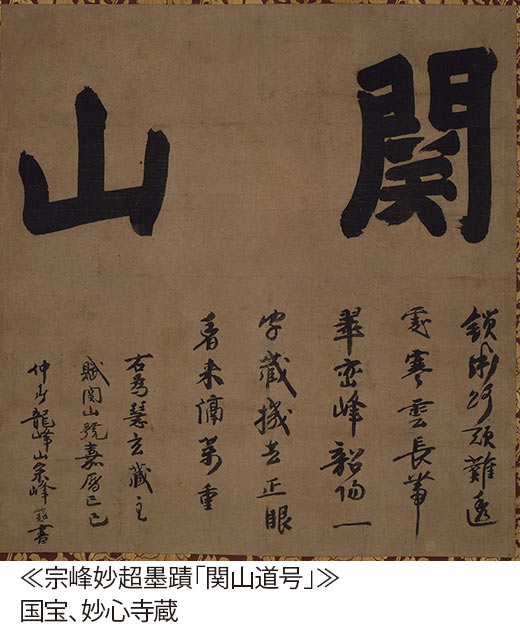 関山
鎖断路頭難透
處寒雲長帯
翠巒峰韶陽一
字蔵機去正眼
看来隔萬重
右為慧玄蔵主
賦関山號嘉暦己巳
仲春龍峰山宗峰書
≪宗峰妙超墨蹟「関山道号」≫
国宝、妙心寺蔵